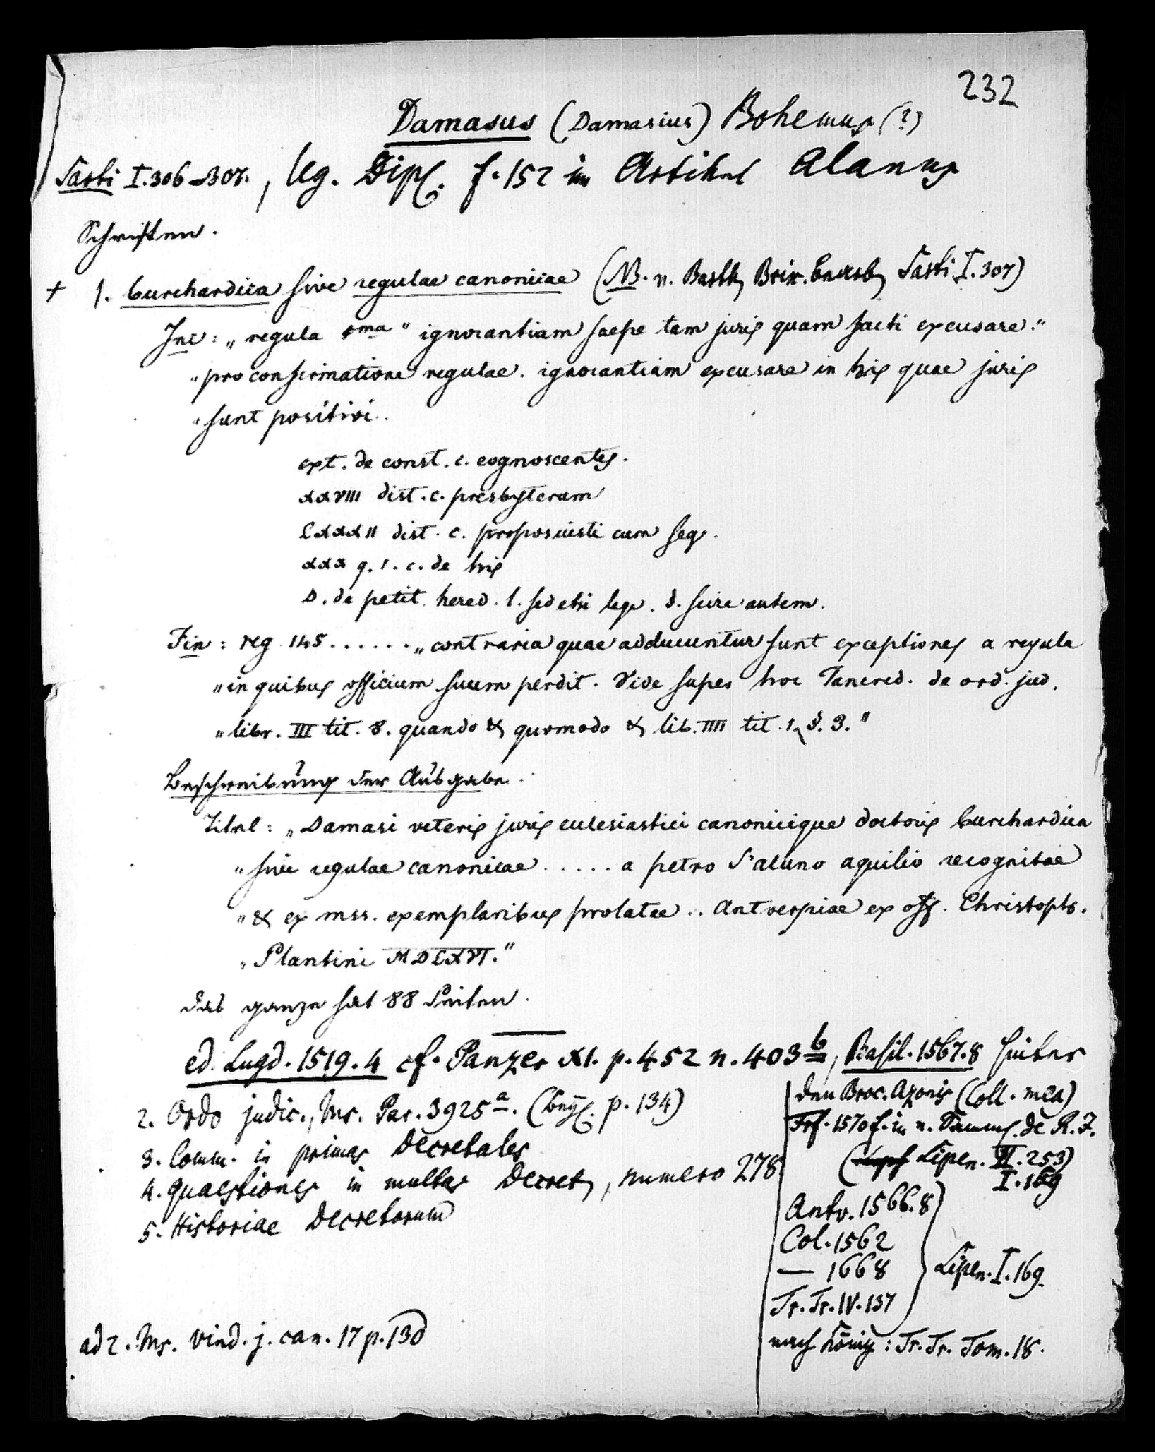 232
Damasus (Damasius) Bohemus (?)
Sarti I. 306–307., leg. Dipl. f. 152 im Artikel Alanus
Schriften.
+ 1. burchardica sive regulae canonicae (NB. v. Brix. Sarti I. 307)
Inc: „regula 1ma" ignorantiam saepe tam juris quam facti excusare."
„pro confirmatione regulae. ignorantiam excusare in his quae juris
„sunt positivi.
ext. de const. c. cognoscentes.
XXVIII dist. c. presbyterum
LXXXII dist. c. proposuisti cum seq.
XXX q. 1. c. de his
D. de petit. hered. l. sed etsi lege. §. scire autem.
Fin: reg 145 ...... „contraria quae adducuntur sunt exceptiones a regula
„in quibus officium suum perdit. Vide super hoc Tancred. de ord. jud.
„libr. III tit. 8. quando & quomodo & lib. IIII tit. 1, §. 3."
Beschreibung der Ausgabe.
Titel: „Damasi veteris juris ecclesiastici canonicique doctoris burchardica
„sive regulae canonicae ..... a petro aquilio recognitae
„& ex mss. exemplaribus prolatae .. Antverpiae ex off. Christoph.
„Plantini MDLXVI."
das ganze hat 88 Seiten.
ed. Lugd. 1519. 4 cf. Panzer XI. p. 452 n. 403 b, Basil. 1567. 8 hinter
den Broc. Azonis (Coll. mea)
2. Ordo judic., Ms. Par. 3925 a. (p. 134)
Frf. 1570 f. in de R. J.
3. Comm. in primas Decretales
(Lipen. II. 253)
I. 169
4. Quaestiones in multas Decret, numero 278
5. Historiae Decretorum
Antv. 1566. 8
Col. 1562
— 1668
Lipen. I. 169
Tr. Tr. IV. 137
nach König: Tr. Tr. Tom. 18.
ad 2. Ms. Vind. j. can. 17 p. 130